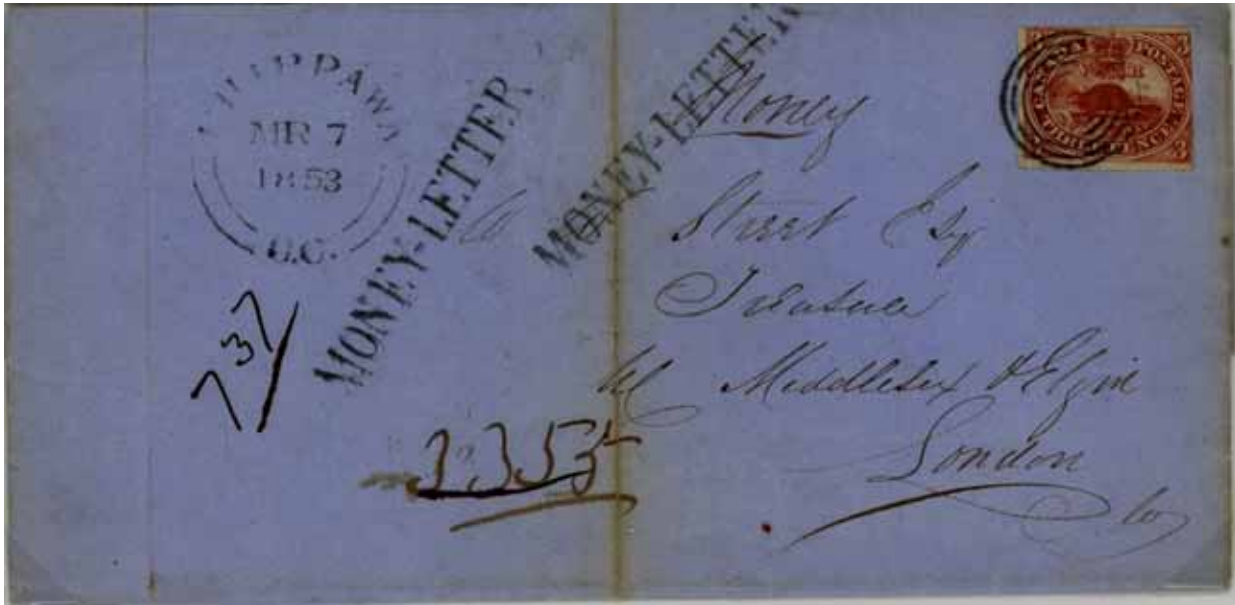 CHIPPAWA
MR 7
1853
U.C.
MONEY-LETTER
MONEY-LETTER
Money
CANADA POSTAGE
THREE PENCE
3
3
Street Esq
Treasurer
Middlesex & Elgin
London
737